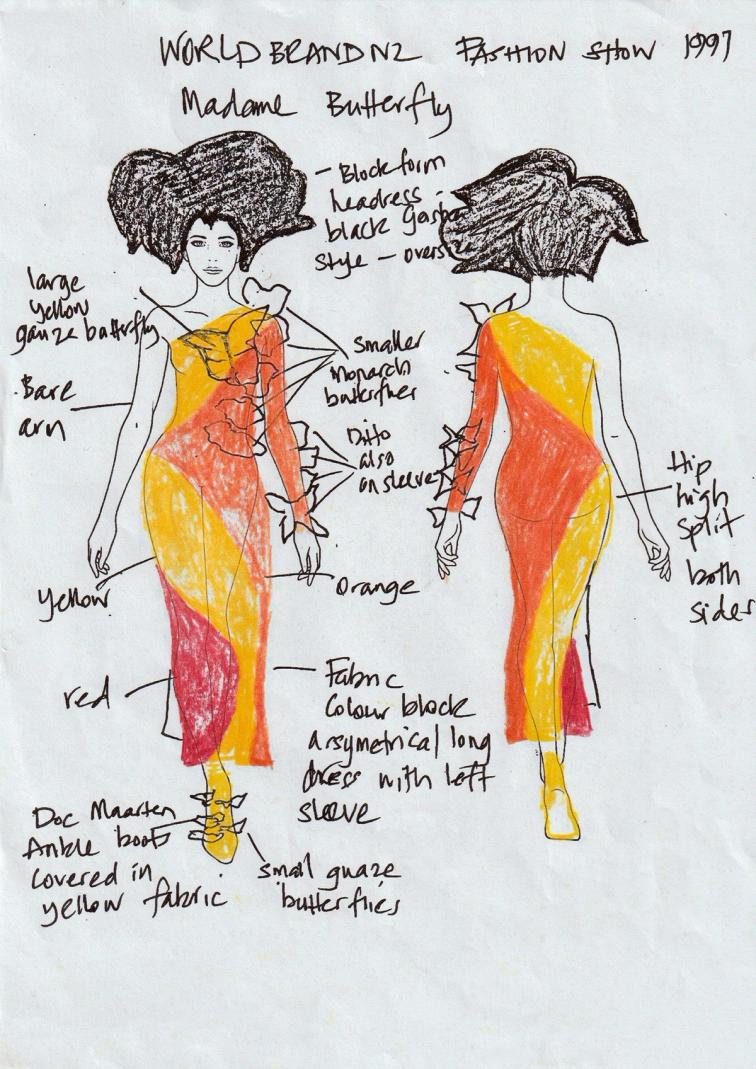 WORLDBRANDNZ FASHION SHOW 1997
Madame Butterfly
- Blockform
headress -
black
style - overs
large
yellow
gauze butterfly
Smaller
Monarch
butterflies
Bare
arm
Ditto
also
on sleeve
Hip
high
split
both
sides
Yellow
Orange
red
Fabric
Colour block
Arsymetrical long
dress with left
sleeve
Doc Maarten
Ankle boots
covered in
yellow fabric
small guaze
butterflies